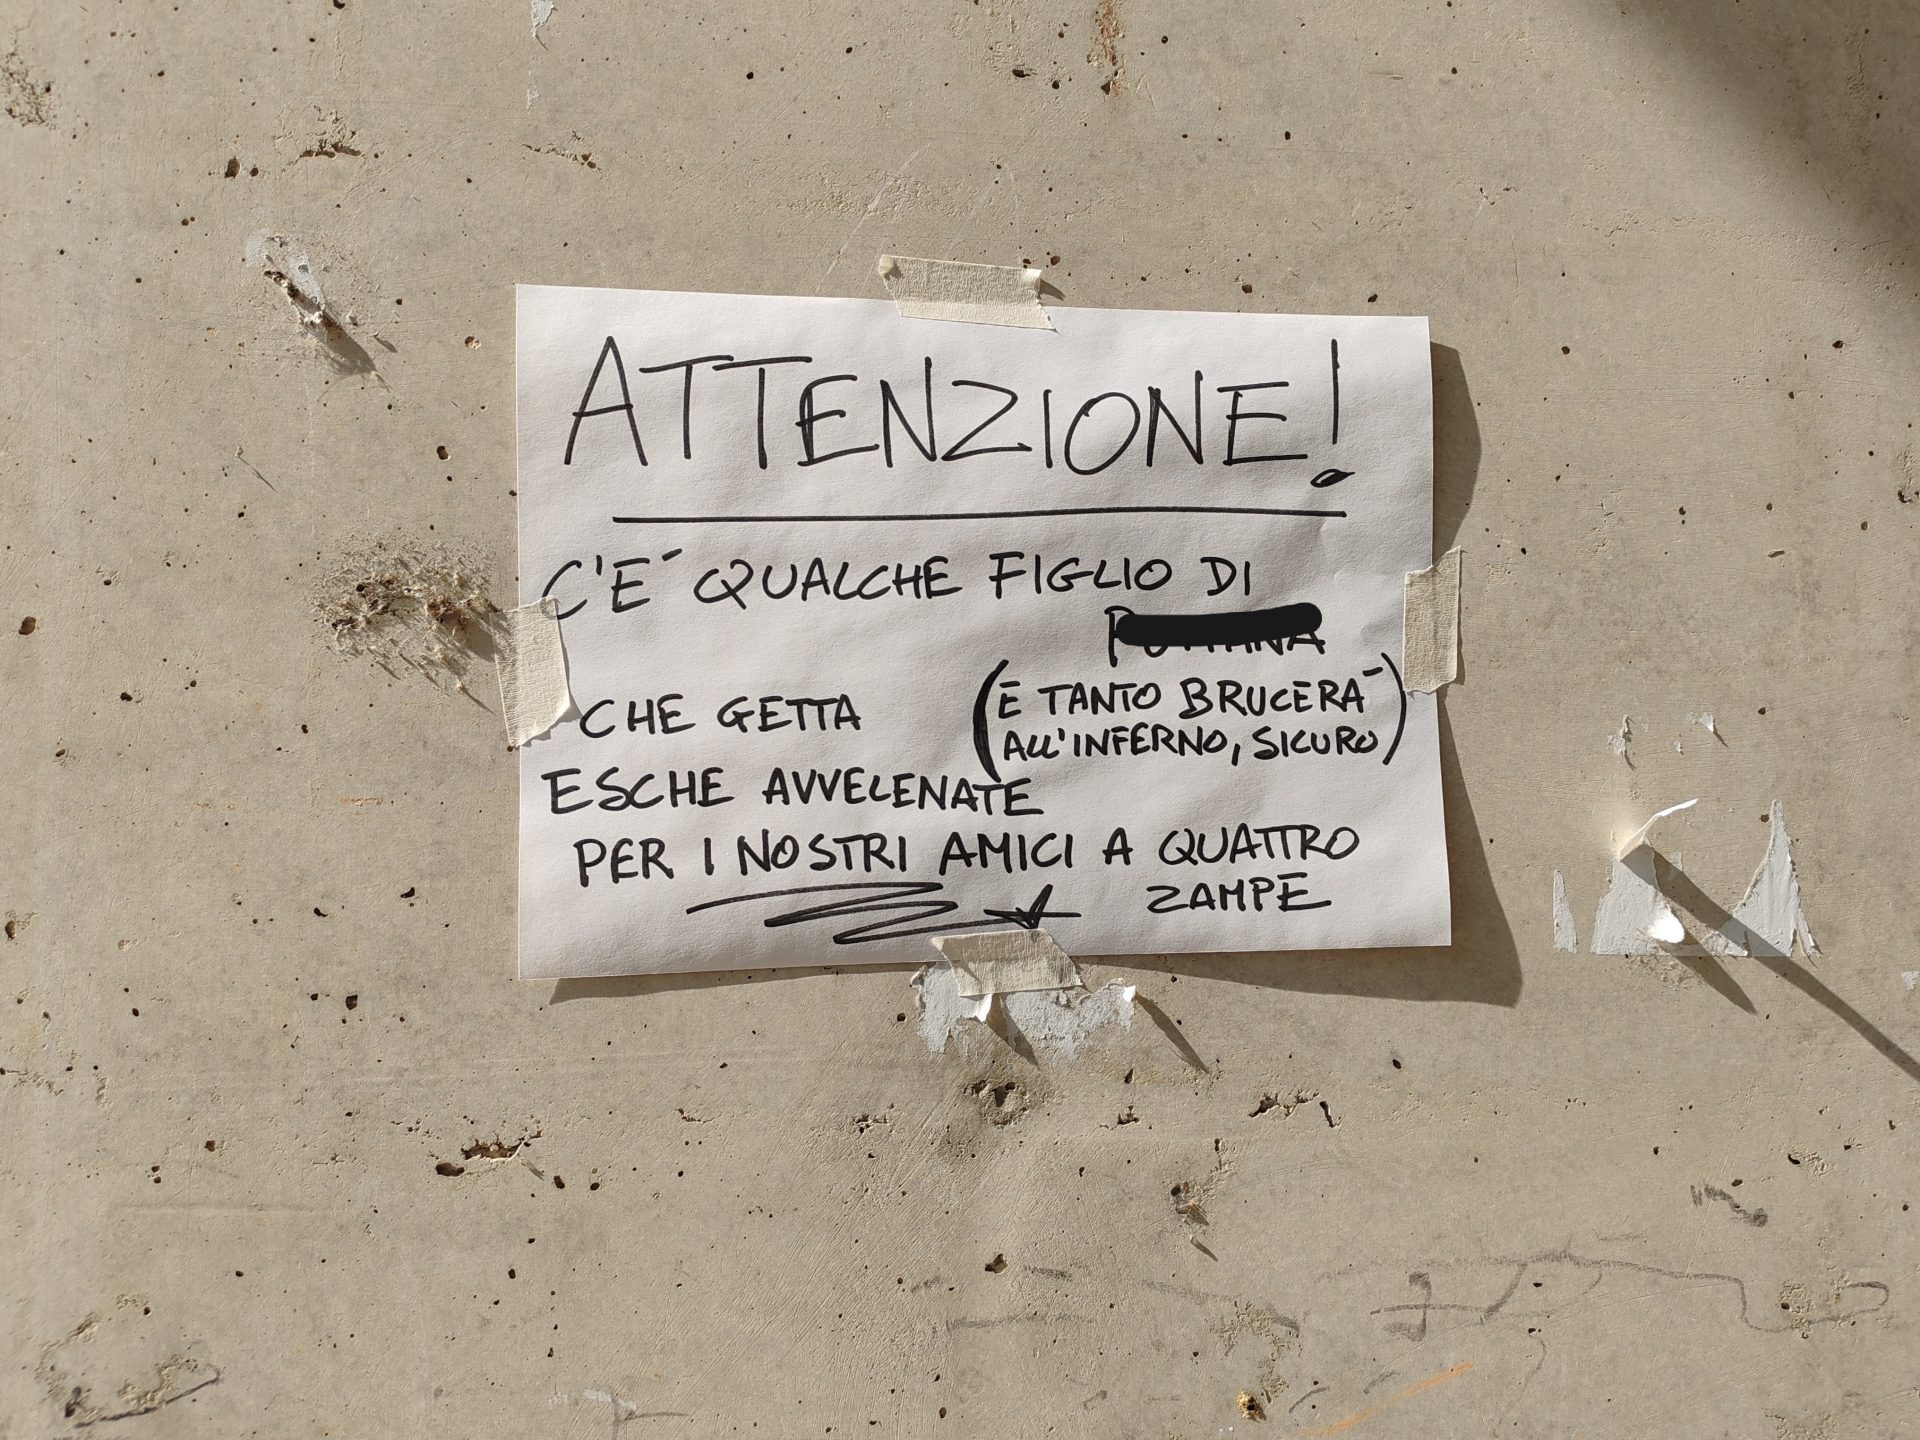 ATTENZIONE!
C'E' QUALCHE FIGLIO DI
CHE GETTA
(E TANTO BRUCERA'
ALL'INFERNO, SICURO)
ESCHE AVVELENATE
PER I NOSTRI AMICI A QUATTRO
ZAMPE